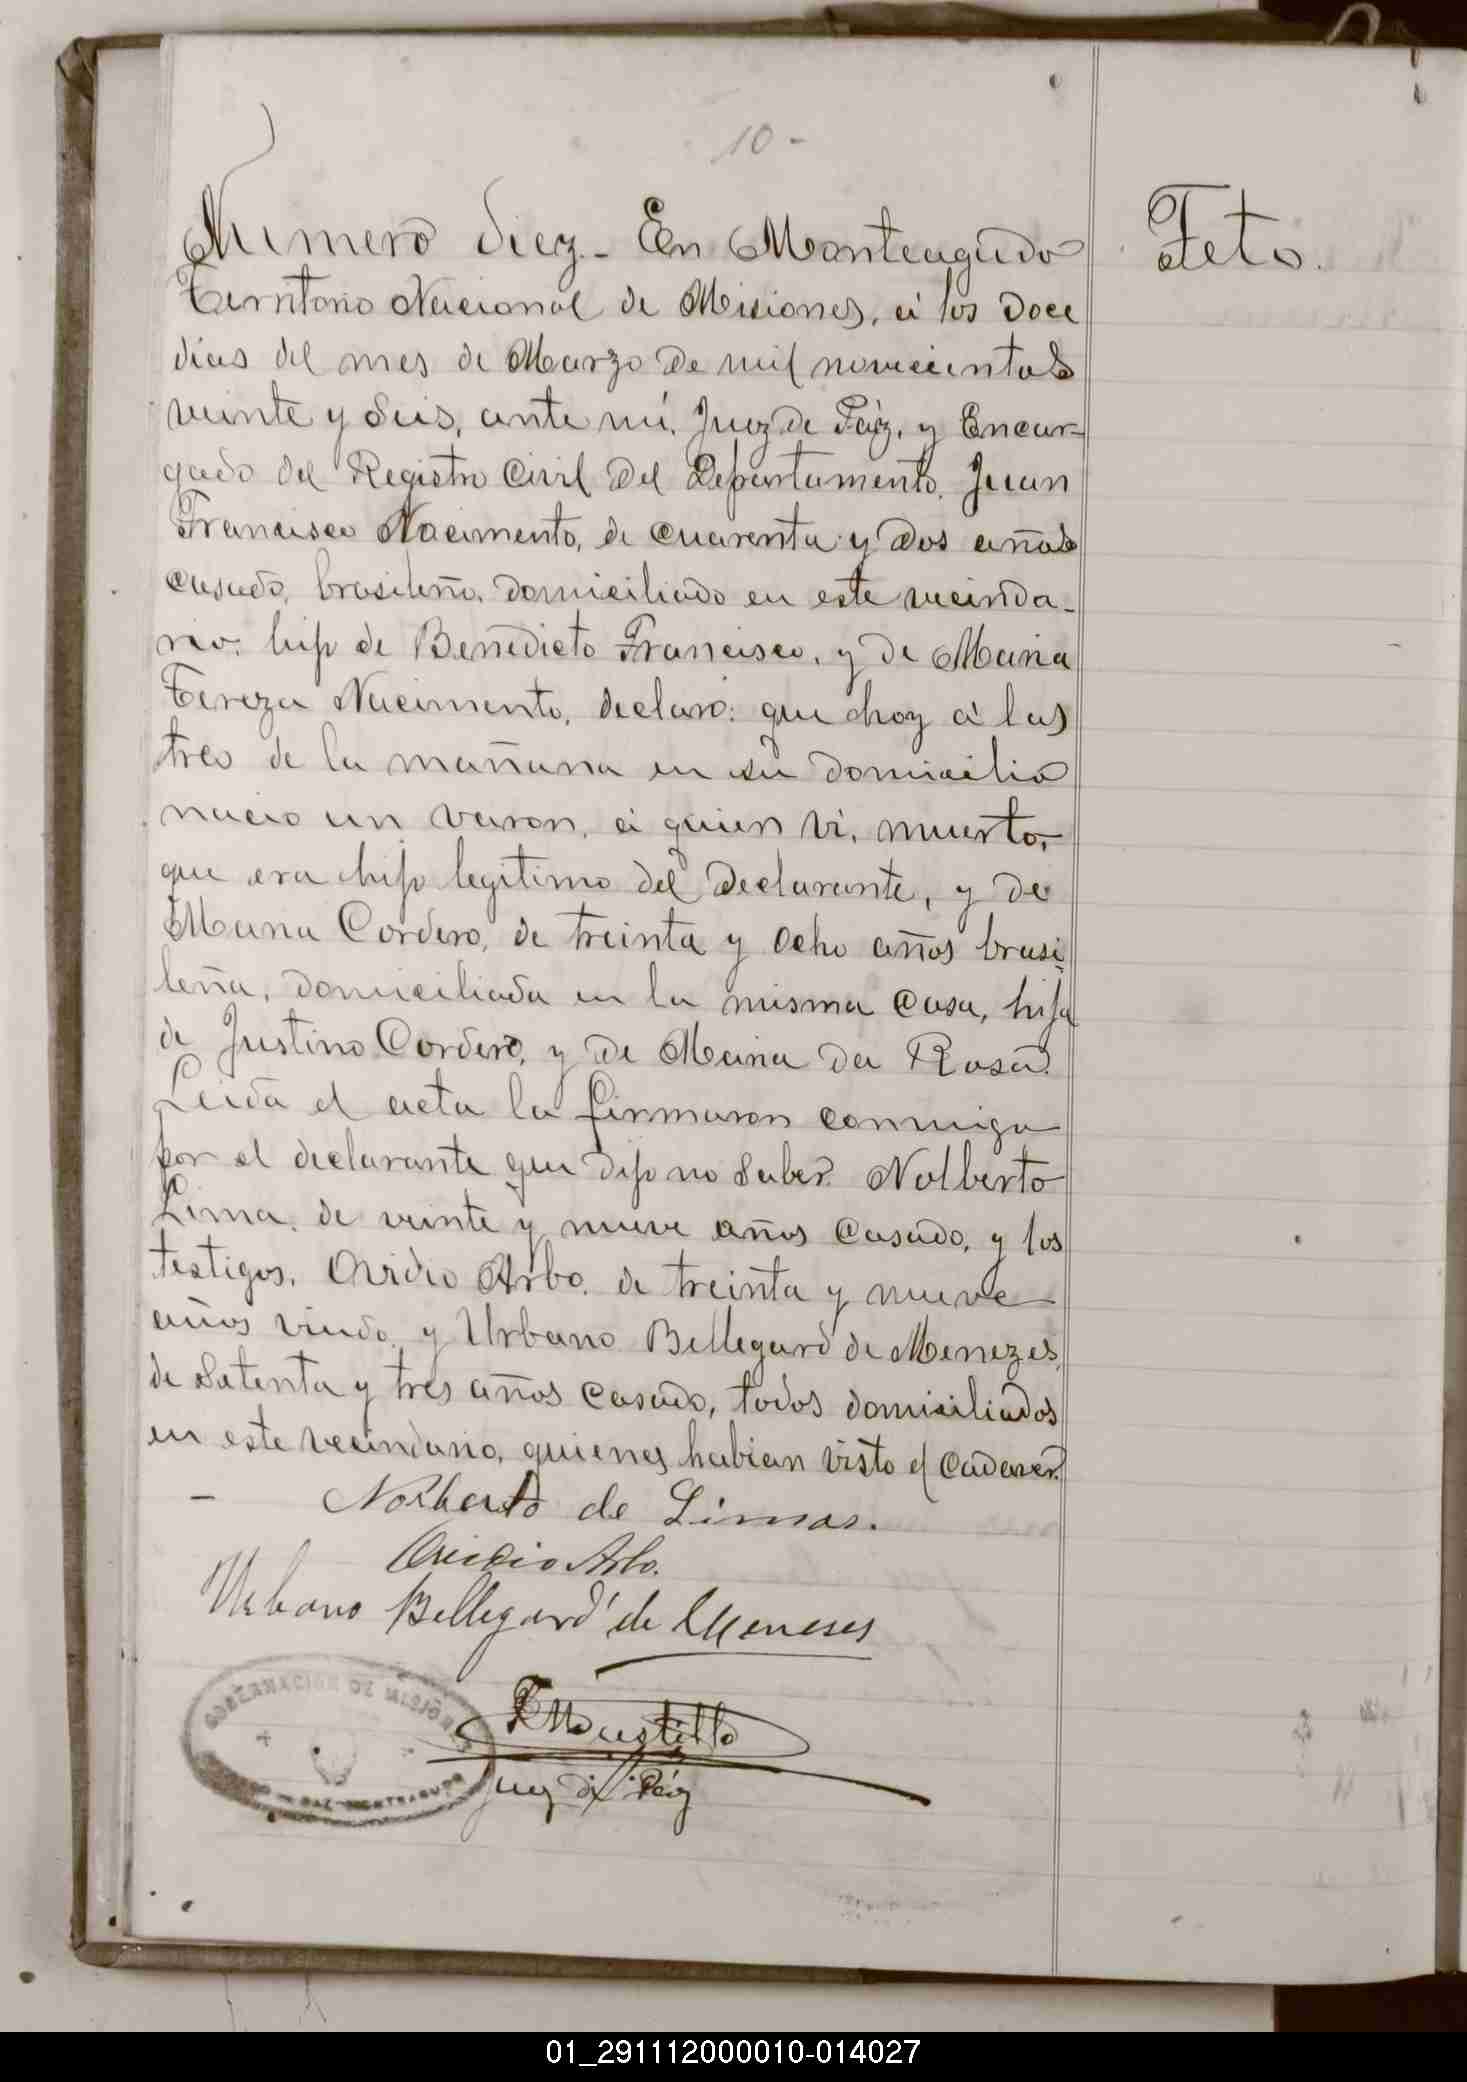 10-
Numero diez.- En Monteagudo
Feto.
Territorio Nacional de Misiones, á los doce
dias del mes de Marzo de mil novecientos
veinte y seis, ante mí, Juez de Páz, y Encar-
gado del Registro Civil del Departamento, Juan
Francisco Nacimento, de cuarenta y dos años
casado, brasileño, domiciliado en este vecinda-
rio, hijo de Benedicto Francisco, y de Maria
Tereza Nacimento, declaró: que hoy á las
tres de la mañana en su domicilio
nacio un varon, á quien vi, muerto,
que era hijo legitimo del declarante, y de
Maria Cordero, de treinta y ocho años brasi
leña, domiciliada en la misma casa, hija
de Justino Cordero, y de Maria da Rosa.
Leida el acta la firmaron conmigo
por el declarante que dijo no saber. Nolberto
Lima, de veinte y nueve años casado, y los
testigos, Ovidio Arbo, de treinta y nueve
años viudo, y Urbano Bellegard de Menezes,
de Setenta y tres años casado, todos domiciliados
en este vecindario, quienes habian visto el cadaver.
- Norberto de Limas.
Ovidio Arbo.
Urbano Bellegard de Meneses
GOBERNACION DE MISIONES
Juez de Páz
01_291112000010-014027